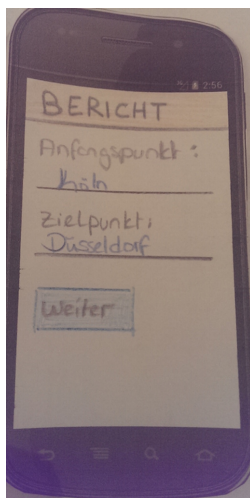 2:56
BERICHT
Anfangspunkt:
Köln
Zielpunkt:
Düsseldorf
Weiter